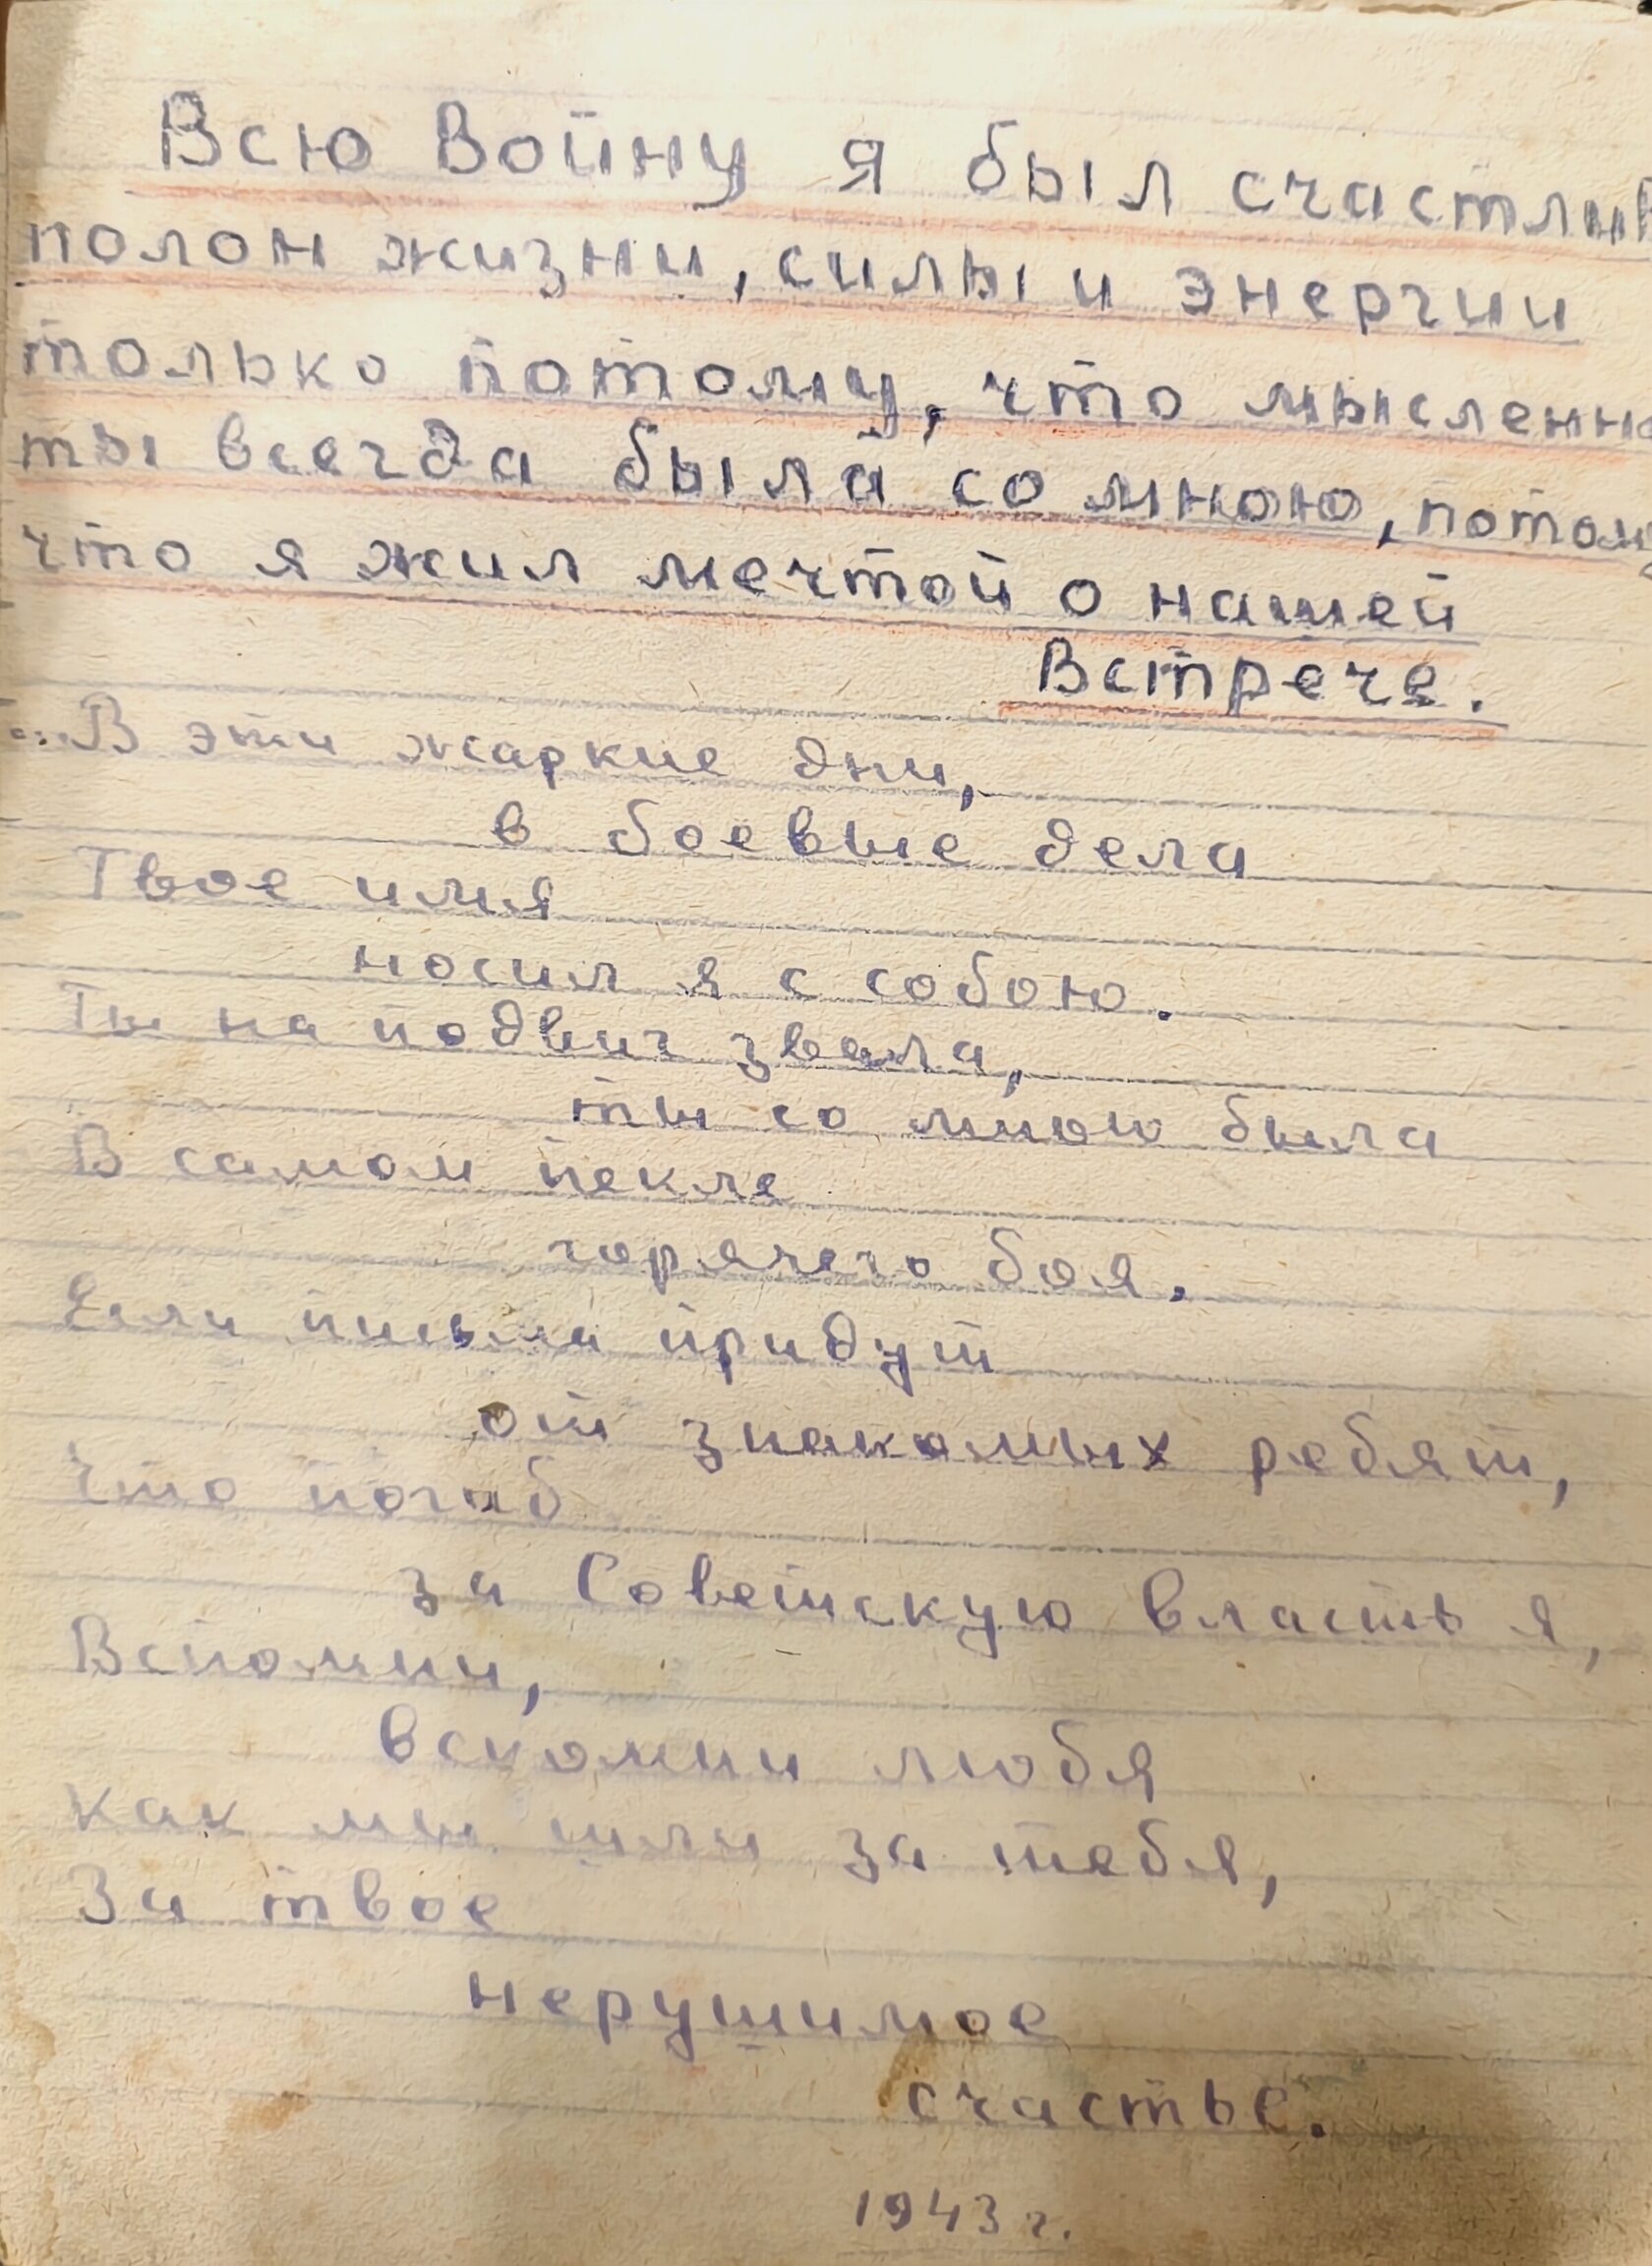 Всю Войну я был счастлив
полон жизни, силы и энергии
только потому, что мысленно
ты всегда была со мною, потому
что я жил мечтой о нашей
Встрече.
...В эти жаркие дни,
в боевые дела
Твое имя
носил я с собою.
Ты на подвиг звала,
ты со мною была
В самом пекле
горячего боя.
Если письма придут
от знакомых ребят,
Что погиб
за Советскую Власть я,
Вспомни,
вспомни любя
Как мы шли за тебя,
За твое
нерушимое
счастье.
1943 г.